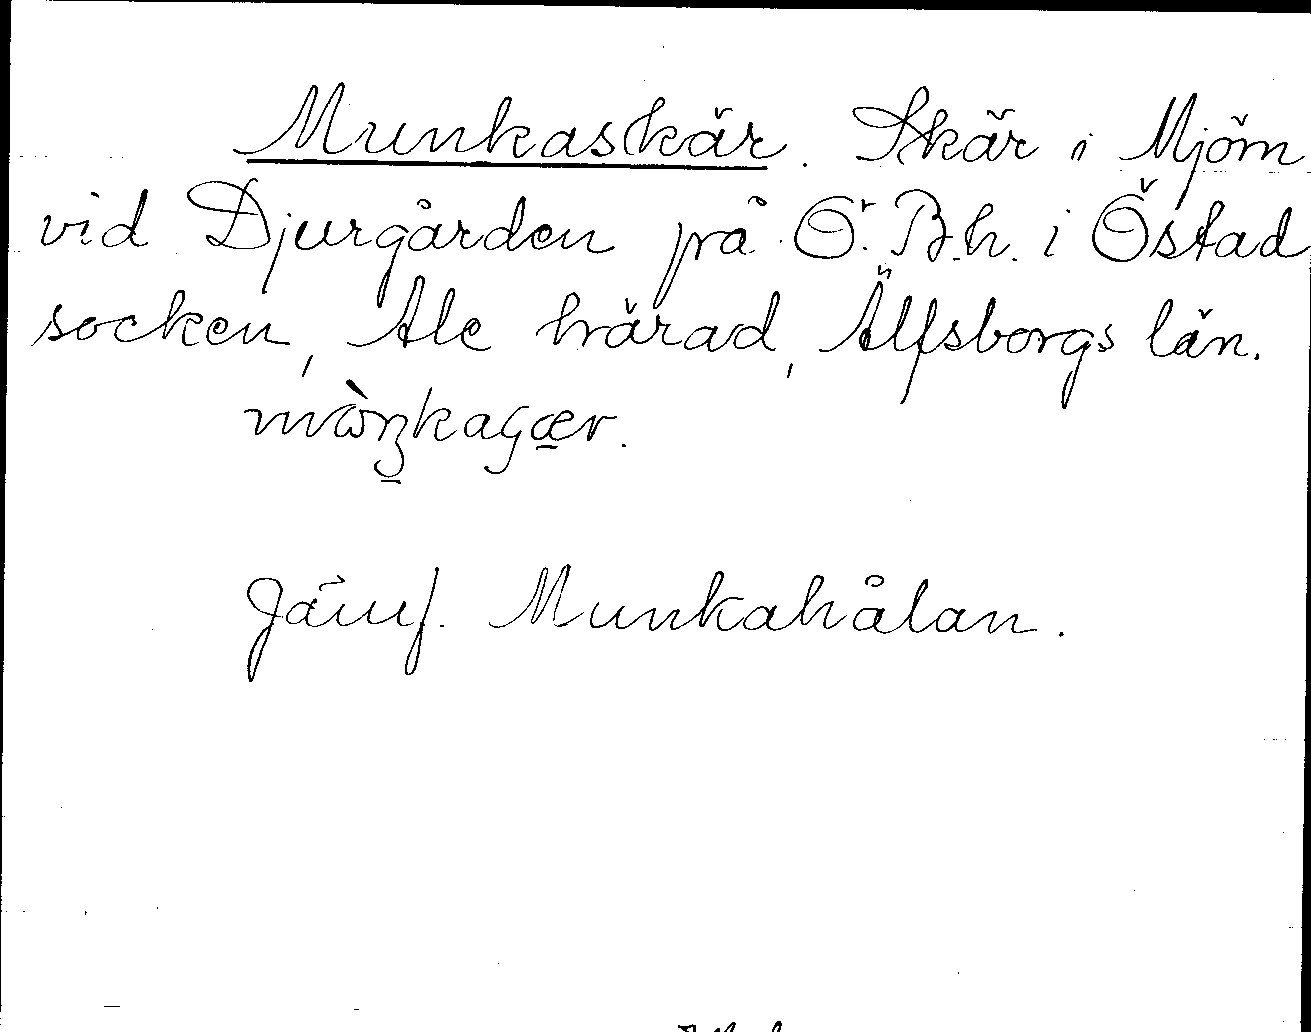 Munkaskär. Skär i Mjörn
vid Djurgården på Ö. B.h. i Östad
socken, Ale härad, Älfsborgs län.
Jämf. Munkahålan.